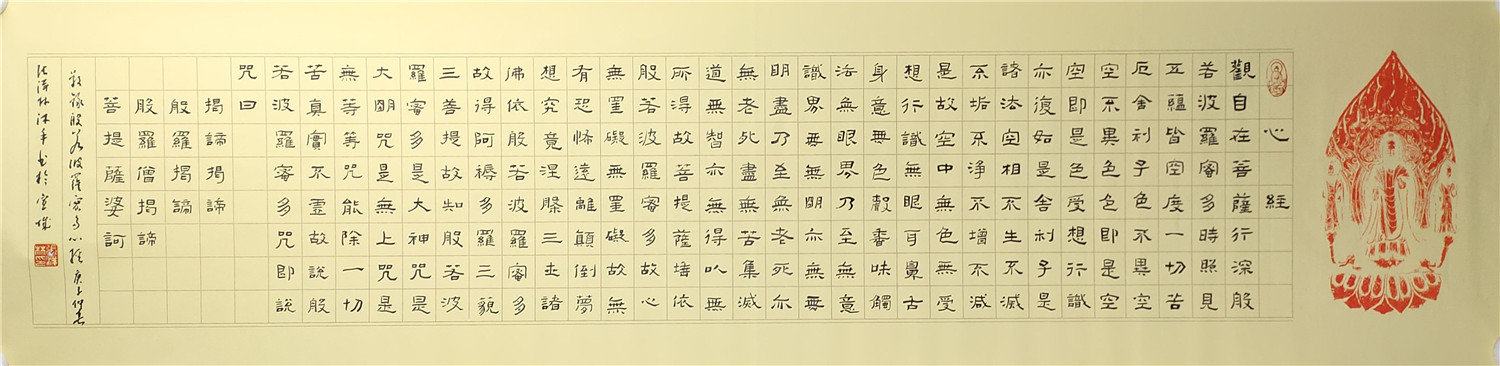 心經
觀自在菩薩行深般
若波羅蜜多時照見
五蘊皆空度一切苦
厄舍利子色不異空
空不異色色即是空
空即是色受想行識
亦復如是舍利子是
諸法空相不生不滅
不垢不淨不增不減
是故空中無色無受
想行識無眼耳鼻舌
身意無色聲香味觸
法無眼界乃至無意
識界無無明亦無無
明盡乃至無老死亦
無老死盡無苦集滅
道無智亦無得以無
所得故菩提薩埵依
般若波羅蜜多故心
無罣礙無罣礙故無
有恐怖遠離顛倒夢
想究竟涅槃三世諸
佛依般若波羅蜜多
故得阿耨多羅三藐
三菩提故知般若波
羅蜜多是大神咒是
大明咒是無上咒是
無等等咒能除一切
苦真實不虛故說般
若波羅蜜多咒即說
咒曰
揭諦揭諦
般羅揭諦
般羅僧揭諦
菩提薩婆訶
敬錄般若波羅蜜多心經庚子仲春
沐手書於宣城